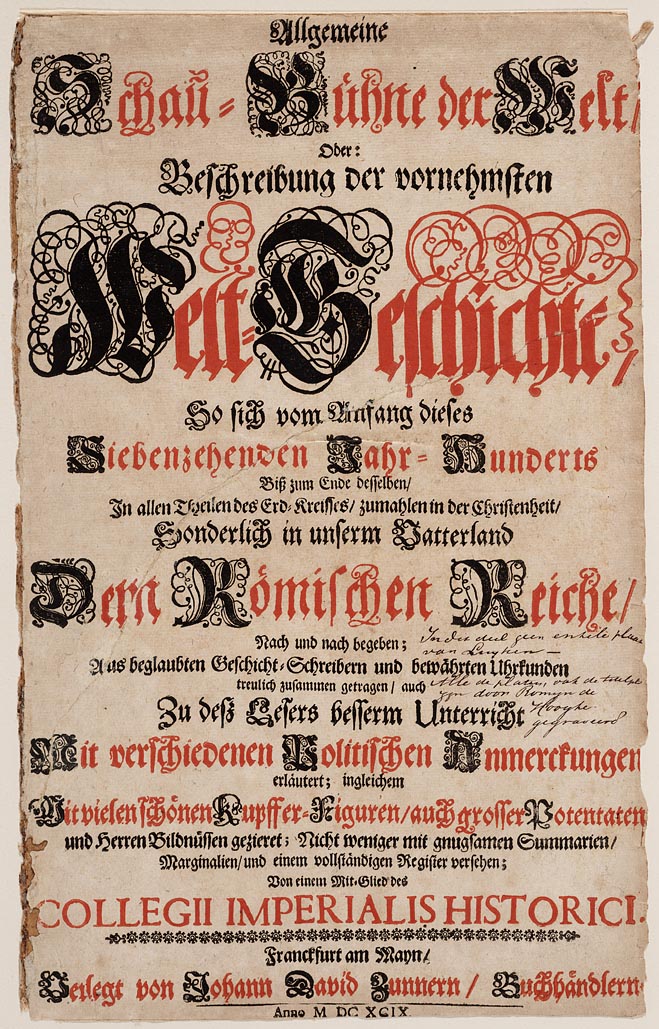 Allgemeine
Schau-Bühne der Welt/
Oder:
Beschreibung der vornehmsten
Welt-Geschichte/
So sich vom Anfang dieses
Siebenzehenden Jahr-Hunderts
Biß zum Ende desselben/
In allen Theilen des Erd-Kreisses/ zumahlen in der Christenheit/
Sonderlich in unserm Vatterland
Dem Römischen Reiche/
Nach und nach begeben;
In dit deel geen enkele plaat
van Luyken —
Aus beglaubten Geschicht-Schreibern und bewährten Uhrkunden
treulich zusammen getragen/ auch
Alle de platen, ook de titelpl
zijn door Romeyn de
Hooghe
gegraveerd
Zu deß Lesers besserm Unterricht
Mit verschiedenen Politischen Anmerckungen
erläutert; ingleichem
Mit vielen schönen Kupffer-Figuren/ auch grosser Potentaten
und Herren Bildnüssen gezieret; Nicht weniger mit gnugsamen Summarien/
Marginalien/ und einem vollständigen Register versehen;
Von einem Mit-Glied des
COLLEGII IMPERIALIS HISTORICI.
Franckfurt am Mayn/
Verlegt von Johann David Zunnern/ Buchhändlern.
Anno M DC XCIX.